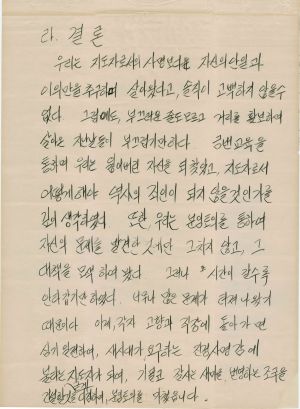 라. 결론
우리는 지도자로서의 사명보다는 자신의 안일과
이익만을 추구하며 살아왔다고, 솔직이 고백하지 않을수
없다. 그럼에도, 부끄러운 줄도 모르고 거리를 활보하며
살아온 지난날들이 부끄럽기만하다. 금번교육을
통하여 우리는 잃어버린 자신을 되찾았고, 지도자로서
어떻게해야 역사의 죄인이 되지 않을것인가를
깊이 생각하였다. 또한, 우리는 분임토의를 통하여
자신의 문제를 발견한 것에만 그치지 않고, 그
대책을 모색하여 봤다. 그러나 시간이 갈수록
안타깝기만 하였다. 너무나 많은 문제가 터져 나왔기
때문이다. 이제, 각자 고향과 직장에 돌아가면
실기완전하여, 새시대가 요구하는 선정사명감에
불타는 지도자가 되어, 기필코 잘사는 새마을, 번영하는 조국을
건설할것을 다짐하며, 분임토의를 마쳤읍니다.